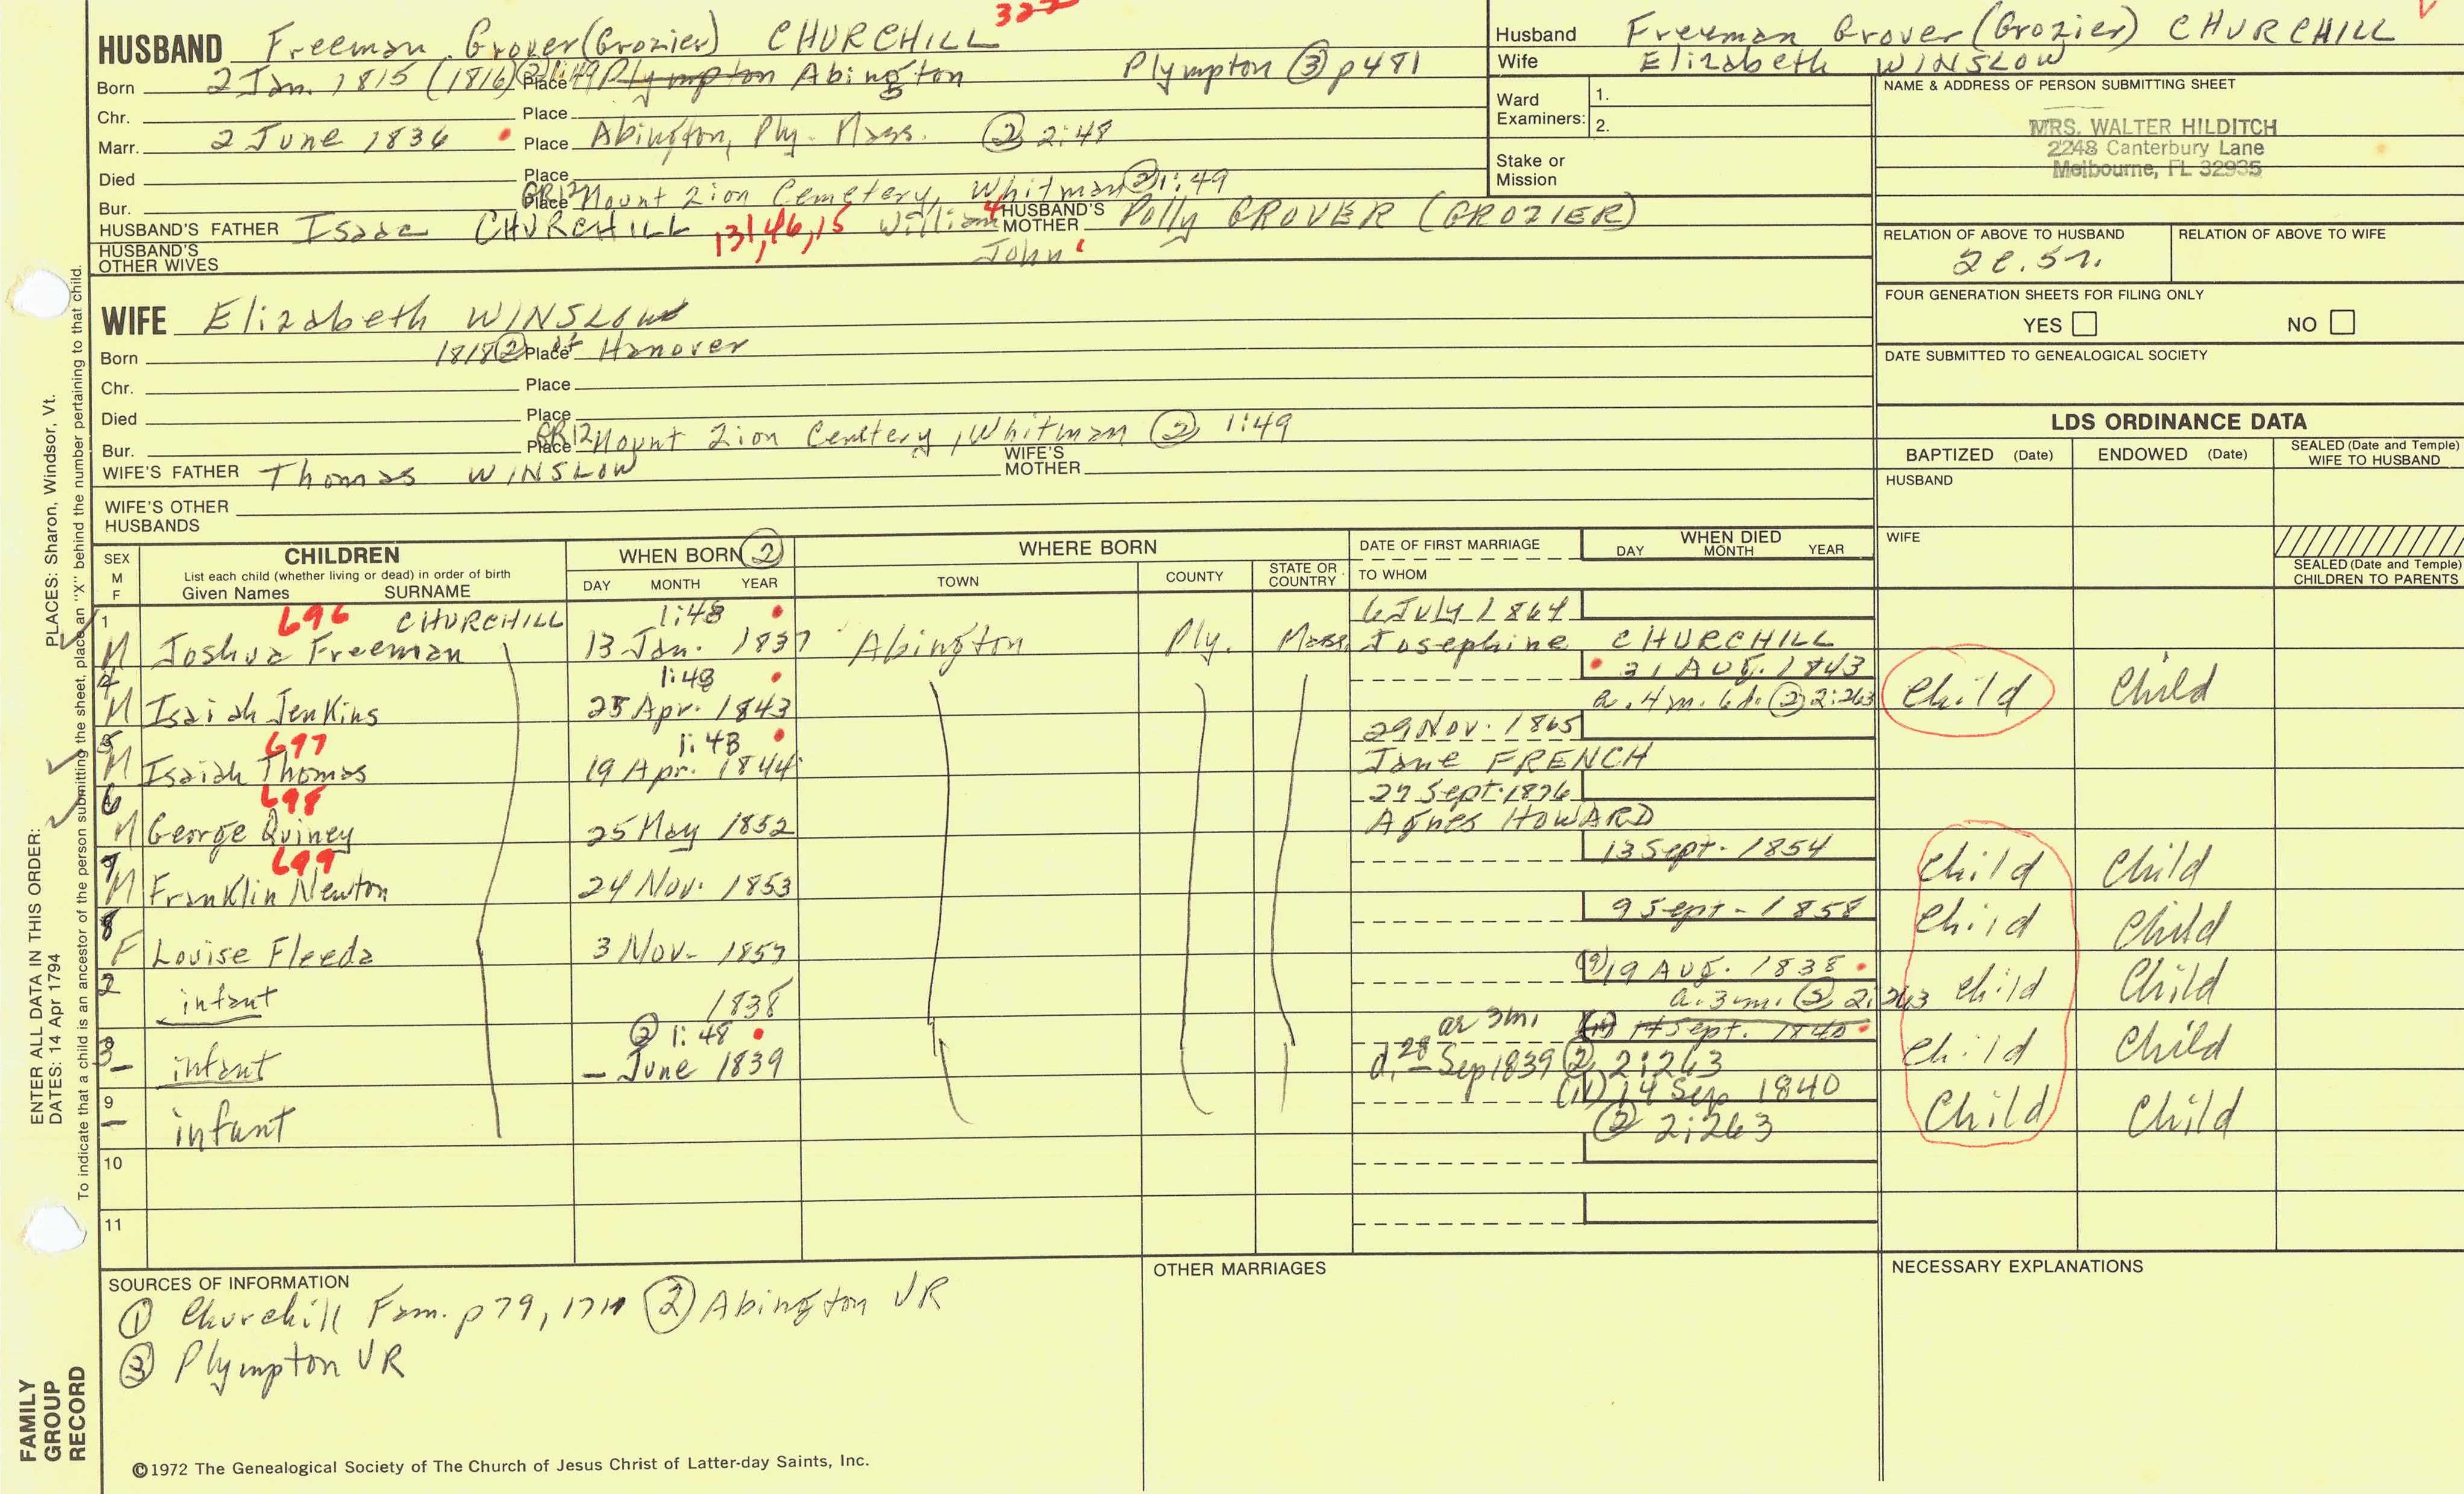 HUSBAND Freeman Grover (Grozier) CHURCHILL 322
Born 2 Jan. 1815 (1816) ② 1:49 Place Plympton Abington Plympton ③ p481
Chr. Place
Marr. 2 June 1836 Place Abington, Ply. Mass. ② 2:48
Died Place
Bur. Place GR12 Mount Zion Cemetery, Whitman ② 1:49
HUSBAND'S FATHER Isaac CHURCHILL 131,46,15 William4 HUSBAND'S MOTHER Polly GROVER (GROZIER)
John
HUSBAND'S OTHER WIVES
Husband Freeman Grover (Grozier) CHURCHILL
Wife Elizabeth WINSLOW
Ward Examiners: 1.
2.
Stake or Mission
NAME & ADDRESS OF PERSON SUBMITTING SHEET
MRS. WALTER HILDITCH
2248 Canterbury Lane
Melbourne, FL 32935
RELATION OF ABOVE TO HUSBAND RELATION OF ABOVE TO WIFE
2c.5r.
FOUR GENERATION SHEETS FOR FILING ONLY
YES NO
DATE SUBMITTED TO GENEALOGICAL SOCIETY
WIFE Elizabeth WINSLOW
Born 1818 ② Place of Hanover
Chr. Place
Died Place
Bur. Place GR12 Mount Zion Cemtery, Whitman ② 1:49
WIFE'S FATHER Thomas WINSLOW WIFE'S MOTHER
WIFE'S OTHER HUSBANDS
LDS ORDINANCE DATA
BAPTIZED (Date) ENDOWED (Date) SEALED (Date and Temple) WIFE TO HUSBAND
HUSBAND
WIFE
SEALED (Date and Temple) CHILDREN TO PARENTS
SEX M F CHILDREN List each child (whether living or dead) in order of birth Given Names SURNAME
WHEN BORN ② DAY MONTH YEAR
WHERE BORN TOWN COUNTY STATE OR COUNTRY
DATE OF FIRST MARRIAGE TO WHOM
WHEN DIED DAY MONTH YEAR
1 696 CHURCHILL 1:48 6 July 1864
M Joshua Freeman 13 Jan. 1837 Abington Ply. Mass. Josephine CHURCHILL
4 1:48 31 Aug. 1843
M Isaiah Jenkins 25 Apr. 1843 a. 4 m. 6 d. ② 2:263 Child Child
5 697 1:48 29 Nov. 1865
M Isaiah Thomas 19 Apr. 1844 Jane FRENCH
6 698 27 Sept. 1876
M George Quiney 25 May 1852 Agnes HOWARD
7 699 13 Sept. 1854
M Franklin Newton 24 Nov. 1853 Child Child
8 9 Sept. 1858
F Louise Fleeda 3 Nov. 1857 Child Child
2 19 Aug. 1838
infant 1838 a. 3 m. ② 2:263 Child Child
3 ② 1:48 ae 3m. 14 Sept. 1840
- infant - June 1839 d. 28 Sep 1839 ② 2:263 Child Child
9 14 Sep 1840
- infant ② 2:263 Child Child
10
11
SOURCES OF INFORMATION
① Churchill Fam. p 79, ② Abington VR
③ Plympton VR
OTHER MARRIAGES
NECESSARY EXPLANATIONS
©1972 The Genealogical Society of The Church of Jesus Christ of Latter-day Saints, Inc.
FAMILY GROUP RECORD
ENTER ALL DATA IN THIS ORDER: PLACES: Sharon, Windsor, Vt.
DATES: 14 Apr 1794
To indicate that a child is an ancestor of the person submitting the sheet, place an "X" behind the number pertaining to that child.